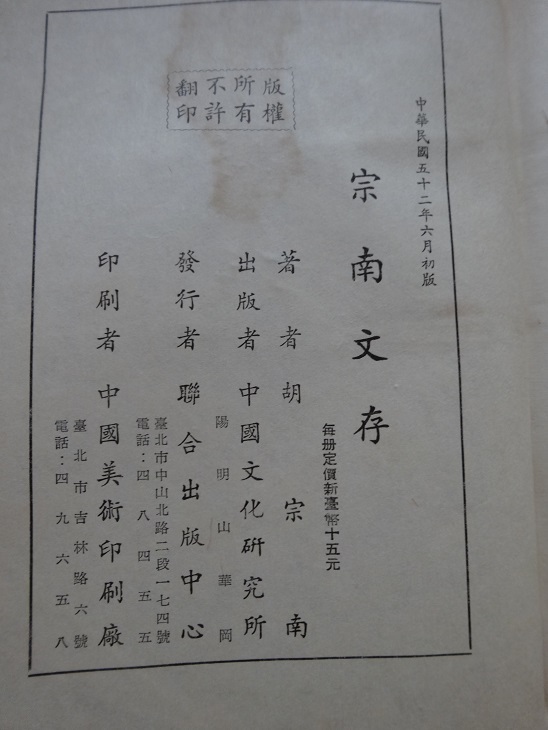 中華民國五十二年六月初版
宗南文存
每册定價新臺幣十五元
著者胡宗南
出版者中國文化研究所
陽明山華岡
發行者聯合出版中心
臺北市中山北路二段一七四號
電話：四八四五五
印刷者中國美術印刷廠
臺北市吉林路六號
電話：四九六五八
版權
所有
不許
翻印